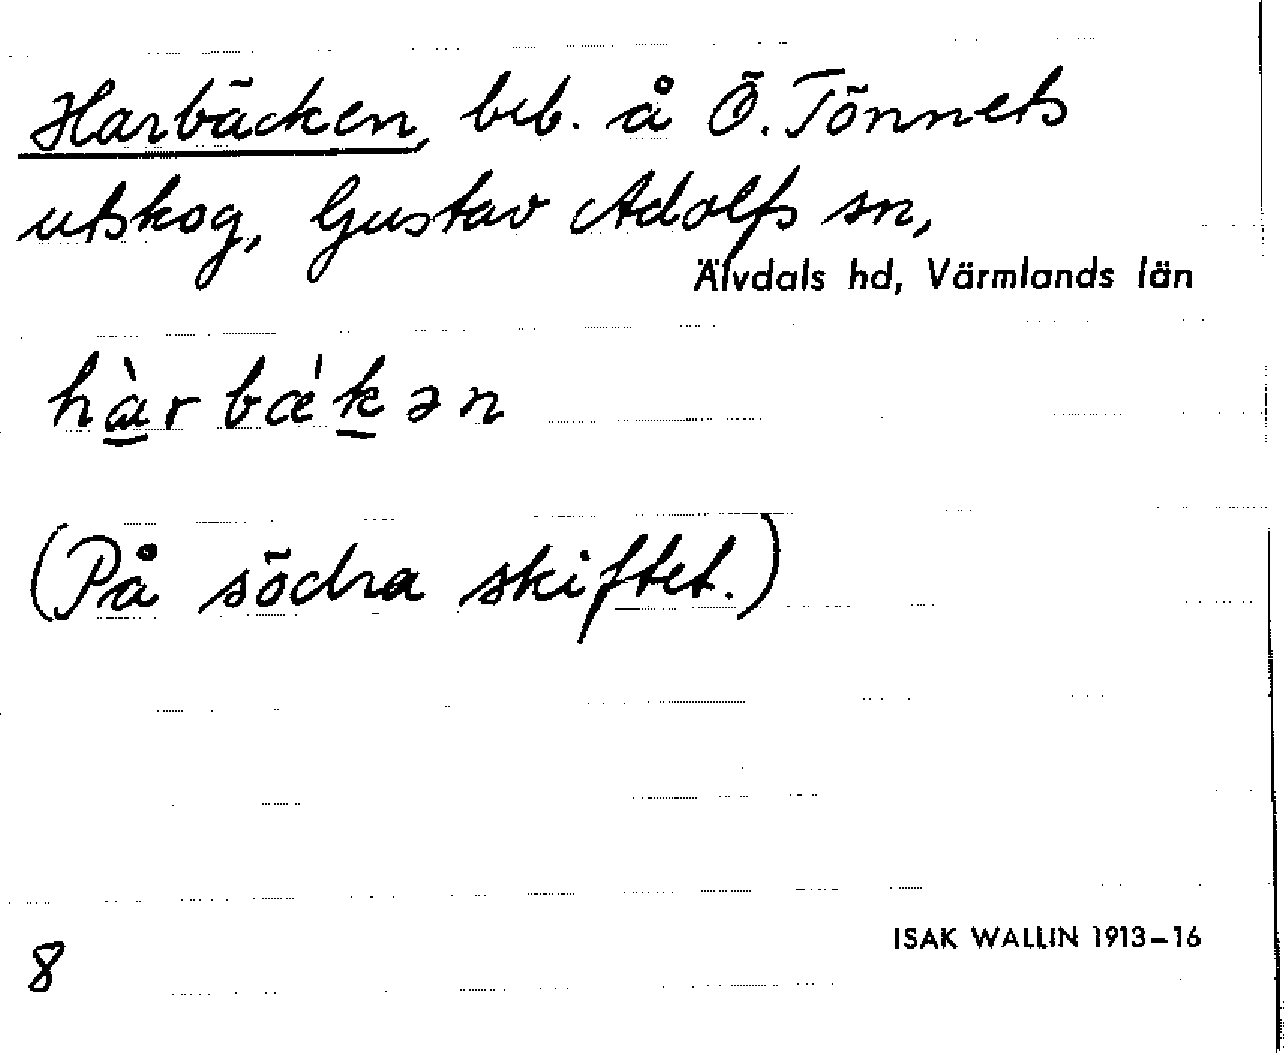 Harbäcken, beb. å Ö. Tönnets
utskog, Gustav Adolfs sn,
Älvdals hd, Värmlands län
hàrbæ'kən
(På södra skiftet.)
8
ISAK WALLIN 1913–16